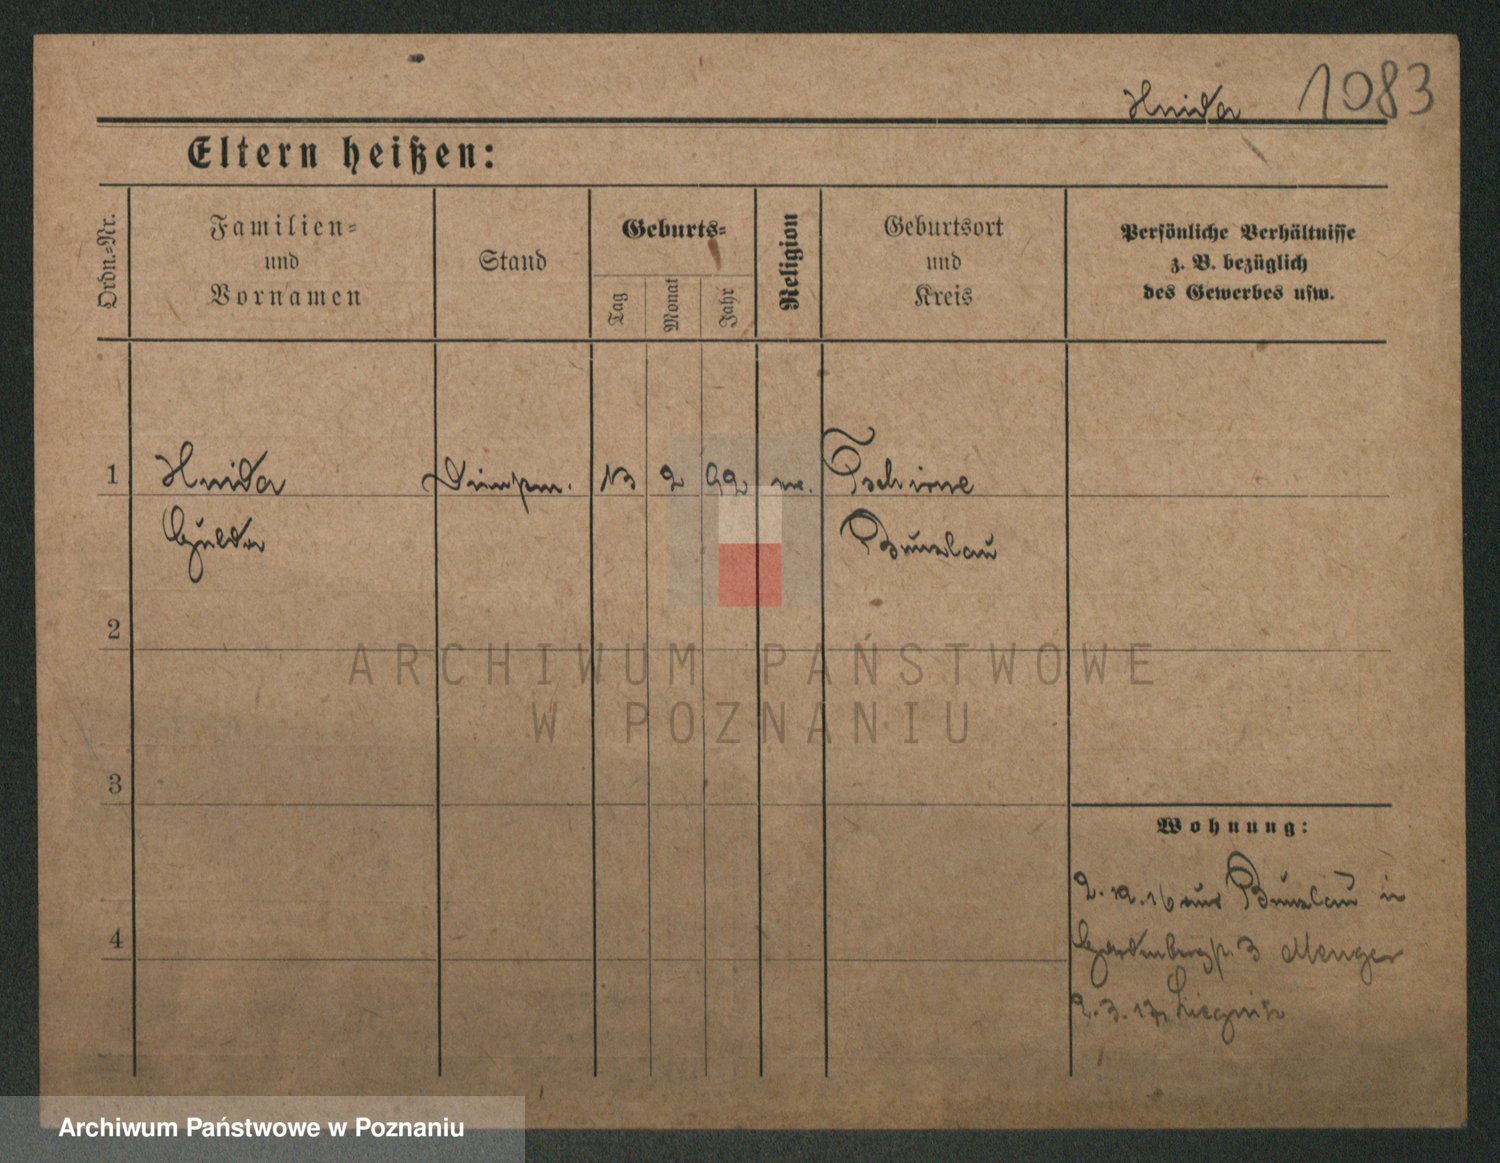 Hnida 1083
Eltern heißen:
Ordn.-Nr.
Familien-
und
Vornamen
Stand
Geburts-
Tag
Monat
Jahr
Religion
Geburtsort
und
Kreis
Persönliche Verhältnisse
z. B. bezüglich
des Gewerbes usw.
1 Hnida 13 2 92 Tschirne
Hulda Bunzlau
2
3
Wohnung:
2. 12. 16 aus Bunzlau in
3 Menger
4
2. 3. 17 Liegnitz
ARCHIWUM PAŃSTWOWE
W POZNANIU
Archiwum Państwowe w Poznaniu